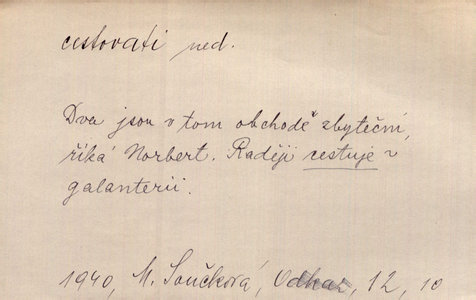 cestovati ned.
Dva jsou v tom obchodě zbyteční,
říká Norbert. Raději cestuje v
galanterii.
1940, M. Součková, Odkaz, 12, 10